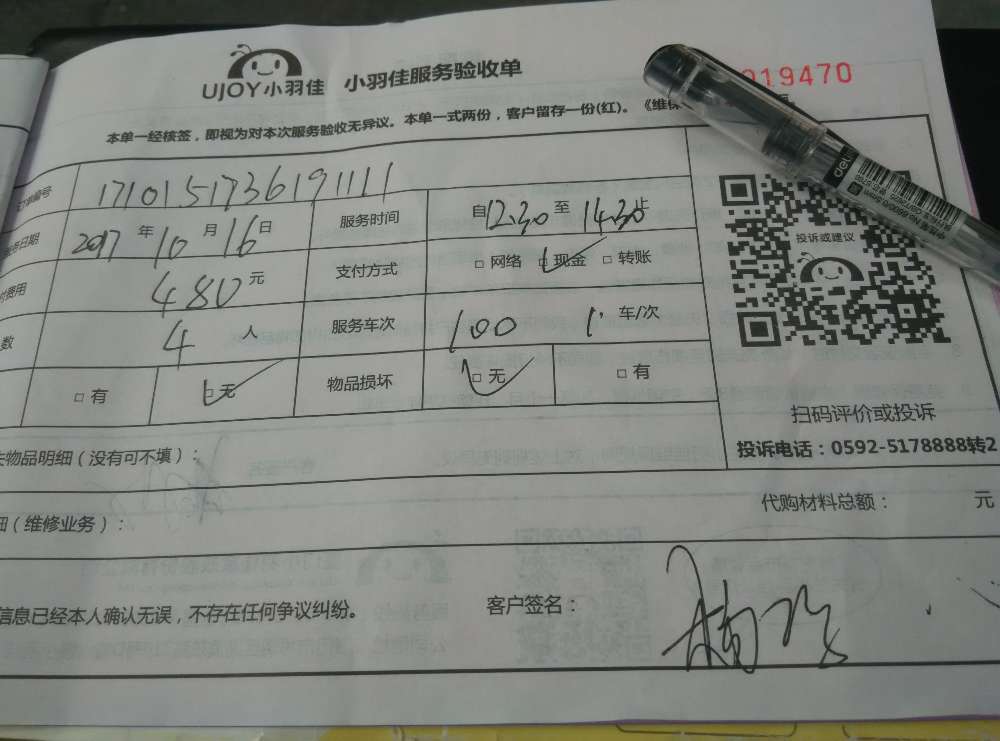 UJOY小羽佳 小羽佳服务验收单
019470
本单一经核签，即视为对本次服务验收无异议。本单一式两份，客户留存一份(红)。《维保
订单编号 17101517361911111
服务日期 2017 年 10 月 16 日 服务时间 自12.30 至 14.30 止
付费用 480 元 支付方式 □ 网络 □ 现金 □ 转账
数 4 人 服务车次 100 1 车/次
□ 有 □ 无 物品损坏 □ 无 □ 有
deli
投诉或建议
扫码评价或投诉
投诉电话：0592-5178888转2
失物品明细（没有可不填）：
代购材料总额： 元
细（维修业务）：
信息已经本人确认无误，不存在任何争议纠纷。 客户签名：